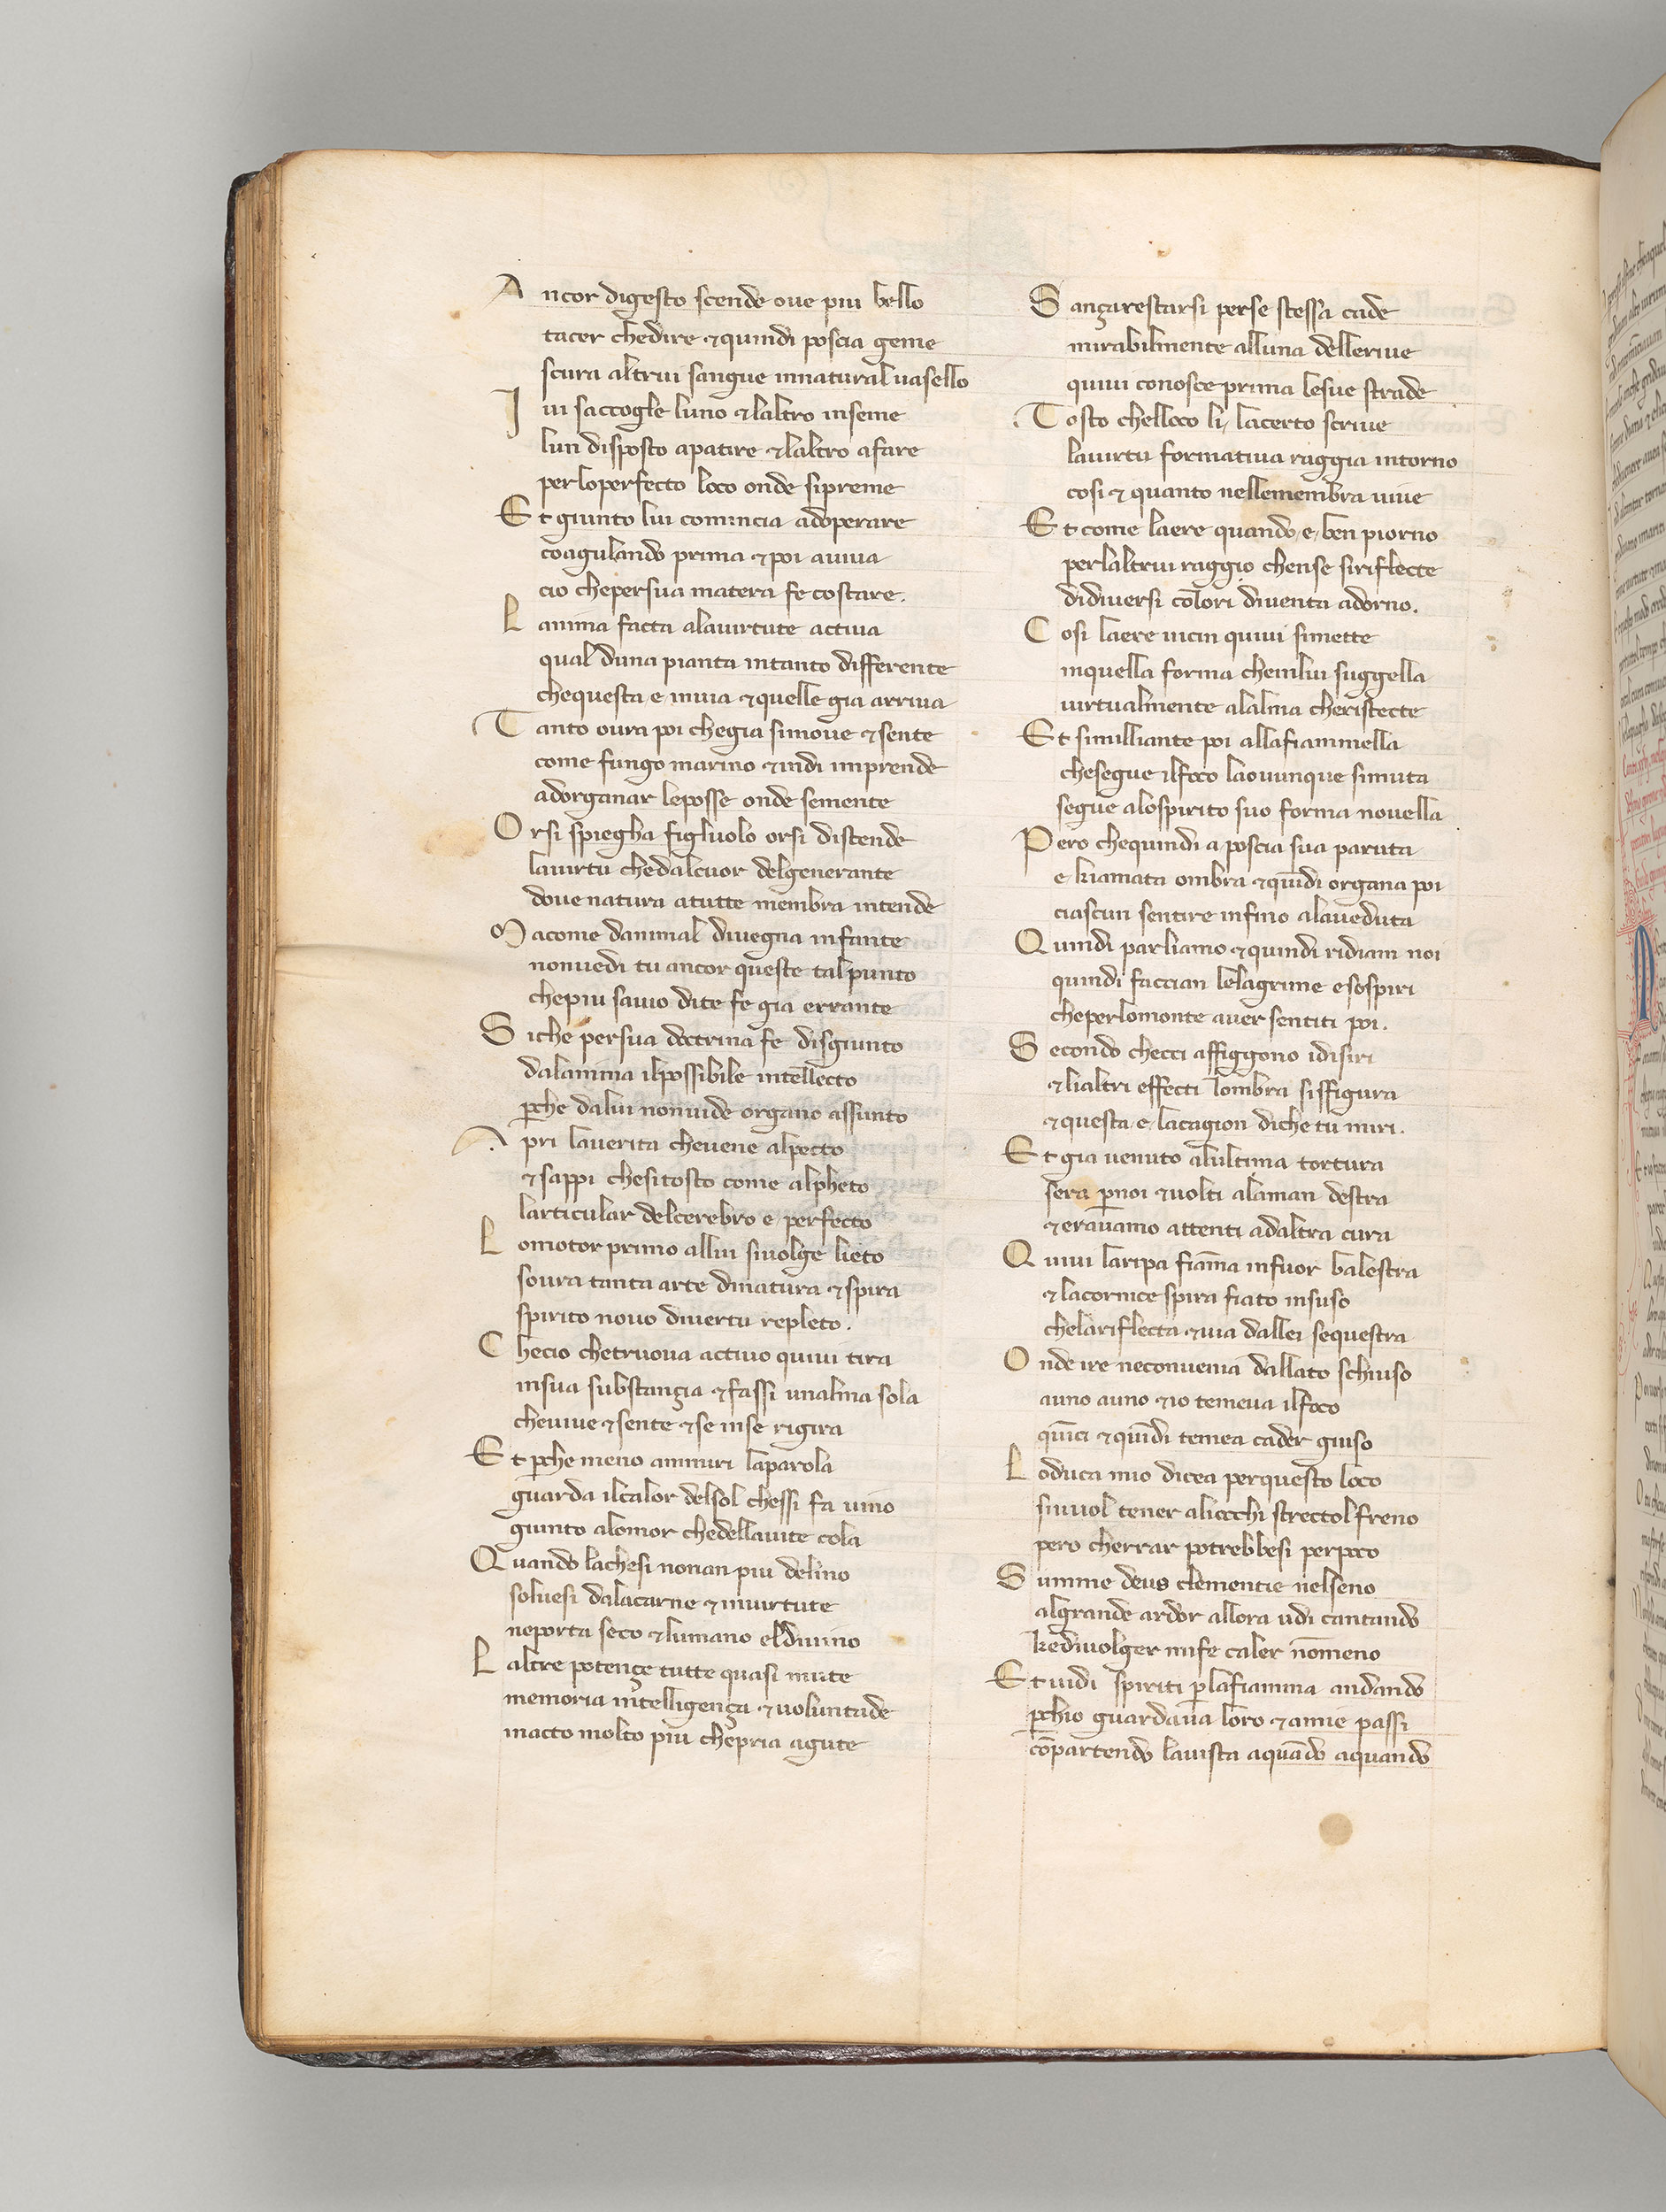 Ancor digesto scende oue piu bello
tacer chedire ⁊ quindi poscia geme
scura altrui sangue innatural uasello
Iui saccogle luno ⁊ laltro inseme
lun disposto apatire ⁊ laltro afare
perloperfecto loco onde sipreme
Et giunto lui comincia adoperare
coagulando prima ⁊ poi auiua
cio chepersua matera fe costare.
Lanima facta alauirtute actiua
qual duna pianta intanto differente
chequesta e inuia ⁊ quelle gia arriua
Tanto oura poi chegia simoue ⁊ sente
come fungo marino ⁊ indi imprende
adorganar leposse onde semente
Orsi spiegha figluolo orsi distende
lauirtu chedalcuor delgenerante
doue natura atutte membra intende
Macome danimal diuegna infante
nonuedi tu ancor queste tal punto
chepiu sauio dite fe gia errante
Siche persua doctrina fe disgiunto
dalanima ilpossibile intellecto
ꝑche dalui nonuide organo assunto
Apri lauerita cheuene alpecto
⁊ sappi chesitosto come alpheto
larticular delcerebro e perfecto
Lomotor primo allui siuolge lieto
soura tanta arte dinatura ⁊ spira
spirito nouo diuertu repleto.
Checio chetruoua actiuo quiui tira
insua substança ⁊ fassi unalma sola
cheuiue ⁊ sente ⁊ se inse rigira
Et ꝑche meno ammiri laparola
guarda ilcalor delsol chessi fa uino
giunto alomor chedellauite cola
Quando lachesi nonan piu delino
soluesi dalacarne ⁊ inuirtute
neporta seco ⁊ lumano eldiuino
Laltre potençe tutte quasi mute
memoria intelligença ⁊ uoluntade
inacto molto piu chepria agute
Sançarestarsi perse stessa cade
mirabilmente alluna dellerive
quiui conosce prima lesue strade
Tosto chelloco li lacerto scriue
lauirtu formatiua raggia intorno
cosi ⁊ quanto nellemembra uiue
Et come laere quando e ben piorno
perlaltrui raggio chense siriflecte
didiuersi colori diuenta adorno.
Cosi laere uicin quiui simette
inquella forma cheinlui suggella
uirtualmente alalma cheristecte
Et simulliante poi allafiammella
chesegue ilfoco laouunque simuta
segue alospirito suo forma nouella
Pero chequindi a poscia sua paruta
e kiamata ombra ⁊ quīdi organa poi
ciascun sentire infino alaueduta
Quindi parliamo ⁊ quindi ridiam noi
quindi faccian lelagrime esospiri
cheperlomonte auer sentiti poi.
Secondo checci affiggono idisiri
⁊ lialtri effecti lombra siffigura
⁊ questa e lacagion diche tu miri.
Et gia uenuto alultima tortura
sera ꝑnoi ⁊ uolti alaman destra
⁊ erauamo attenti adaltra cura
Quiui laripa fiāma infuor balestra
⁊ lacornice spira fiato insuso
chelariflecta ⁊ uia dallei sequestra
Onde ire neconuenia dallato schiuso
auno auno ⁊ io temeua ilfoco
quīci ⁊ quīdi temea cader giuso
Loduca mio dicea perquesto loco
siuuol tener aliocchi strectolfreno
pero cherrar potrebbesi perpoco
Summe deus clementie nelseno
algrande ardor allora udi cantando
kediuolger mife caler nōmeno
Et uidi spiriti ꝑlafiamma andando
ꝑchio guardaua loro ⁊ amie passi
cōpartendo lauista aquādo aquando